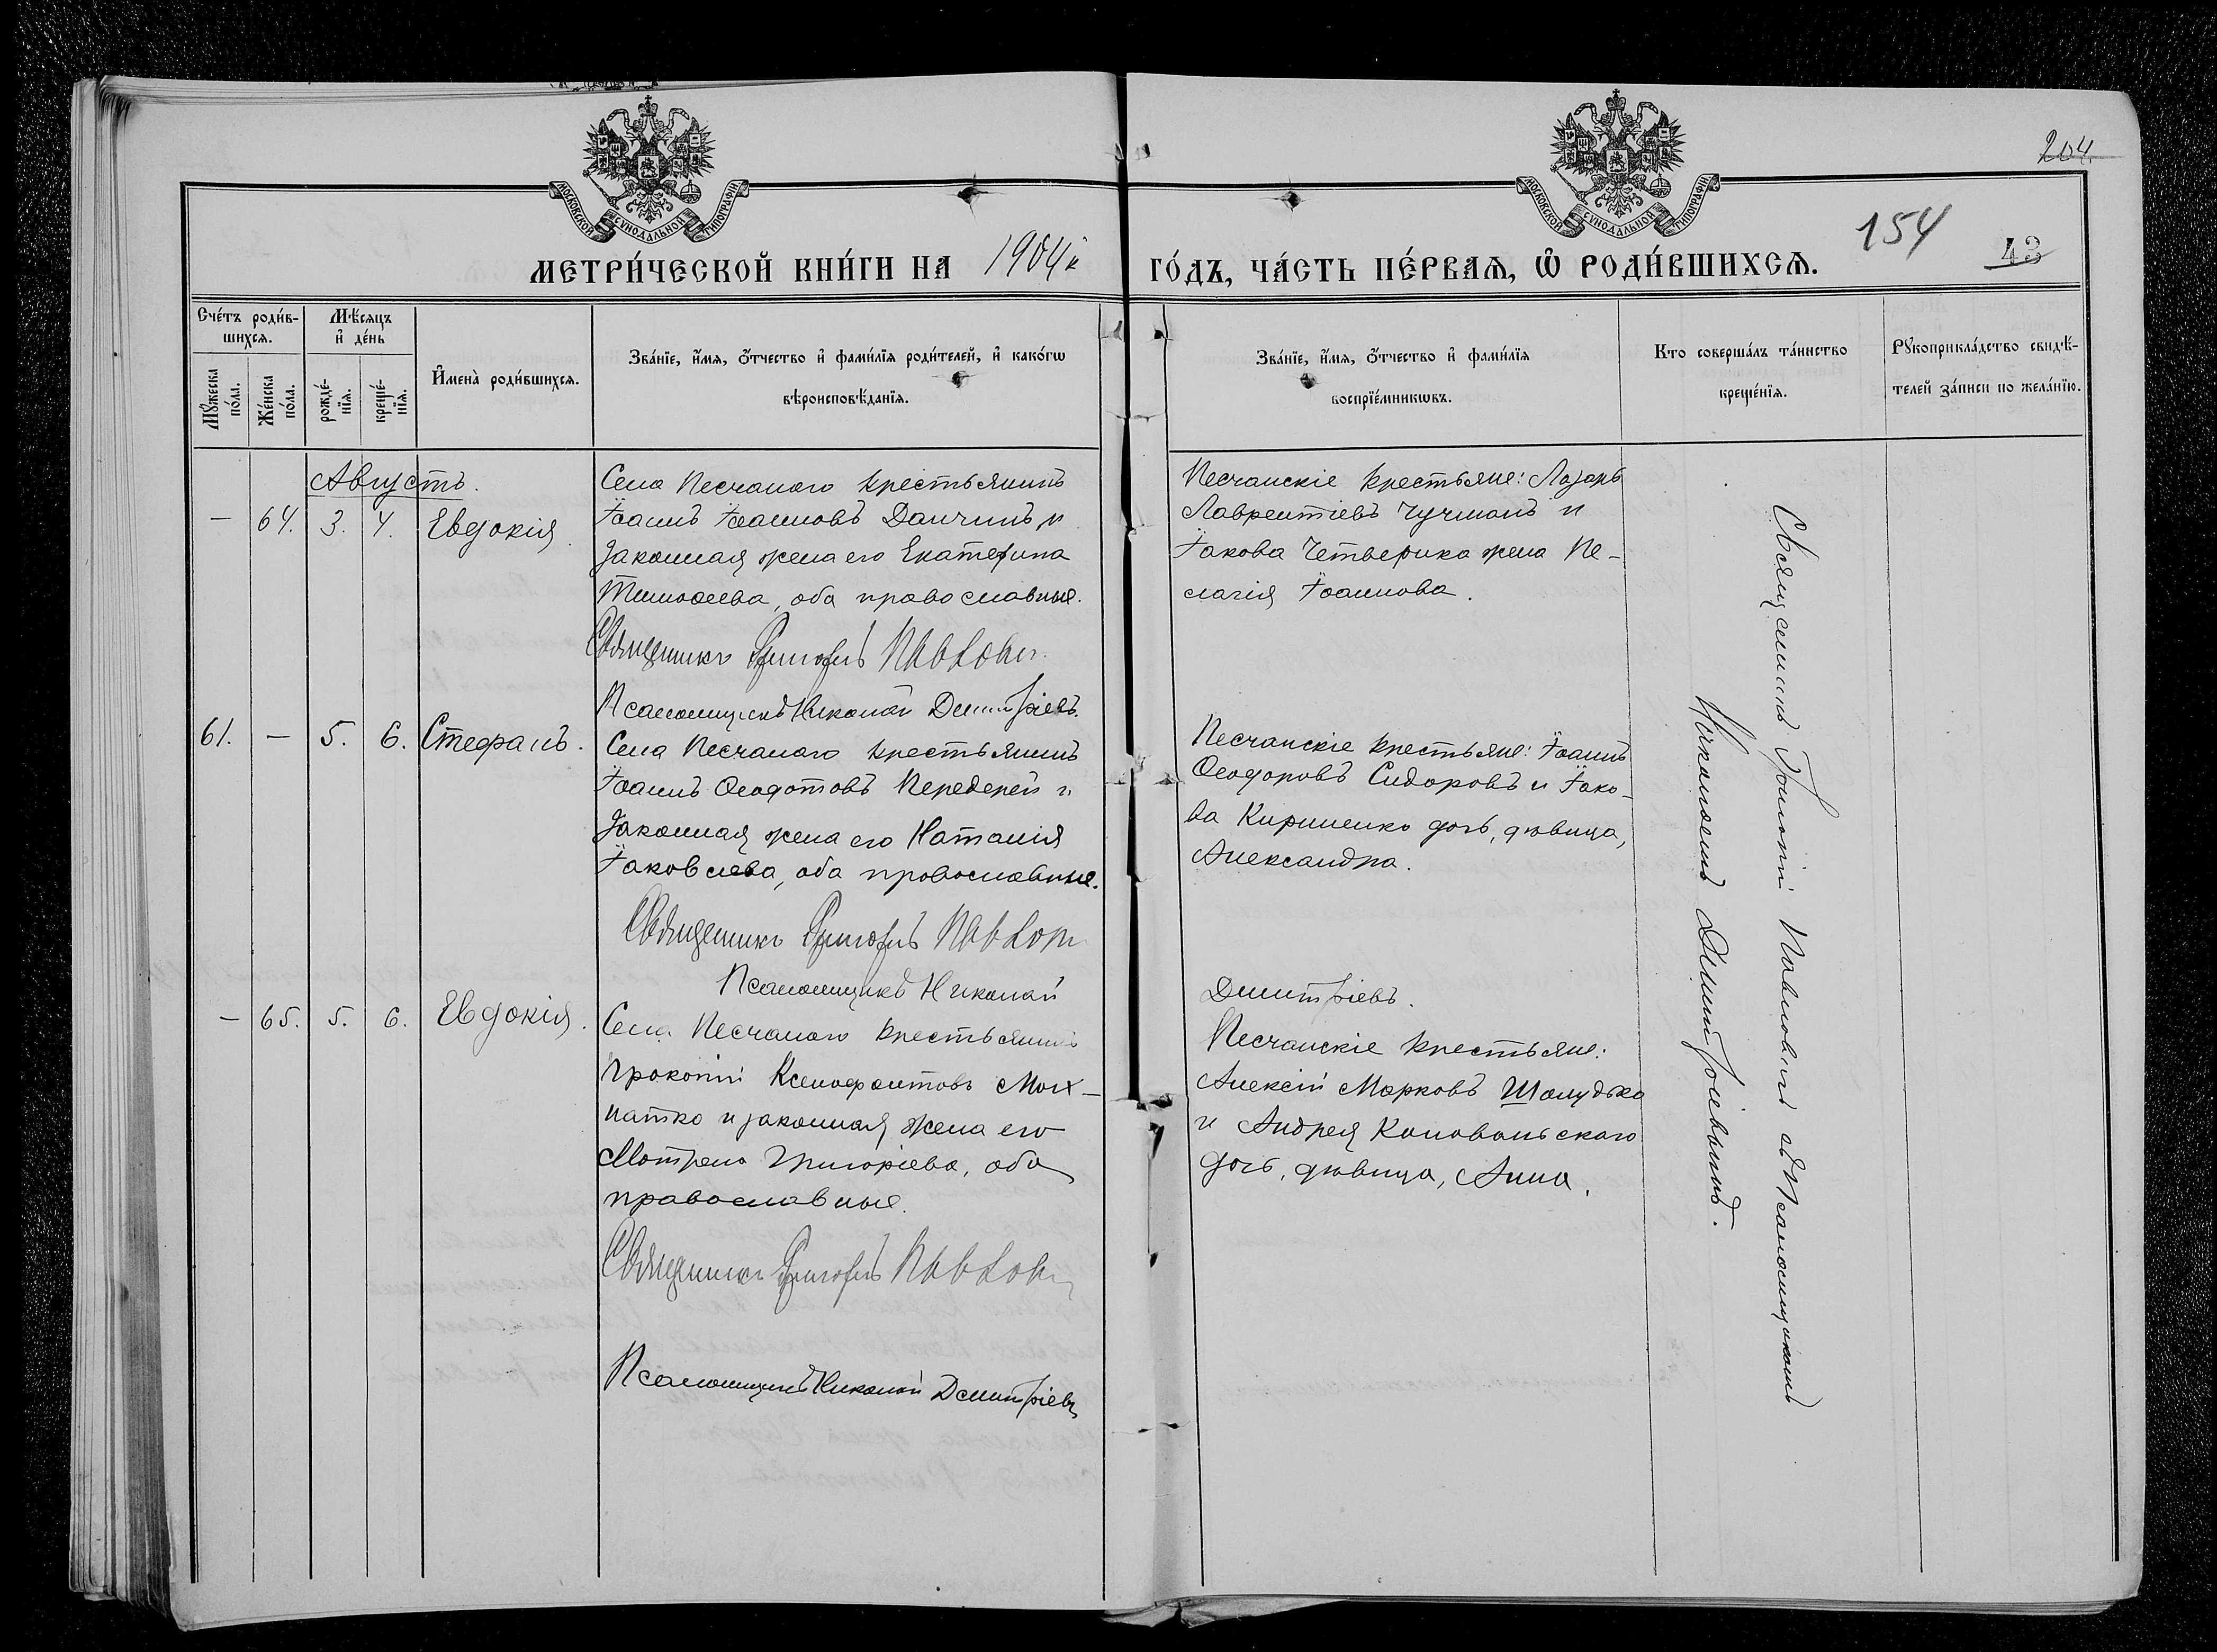 МОСКОВСКОЙ СѴНОДАЛЬНОЙ ТИПОГРАФІИ
МОСКОВСКОЙ СѴНОДАЛЬНОЙ ТИПОГРАФІИ
204.
154
43
МЕТРИ́ЧЕСКОЙ КНИ́ГИ НА 1904й ГО́ДЪ, ЧА́СТЬ ПЕ́РВАѦ, Ѽ РОДИ́ВШИХСѦ.
Сче́тъ роди́в-
шихсѧ.
Мꙋжеска по́ла.
Же́нска по́ла.
Мѣ́сѧцъ
и҆ де́нь
рожде́-
нїѧ.
креще́-
нїѧ.
И҆мена̀ роди́вшихсѧ.
Зва́нїе, и҆́мѧ, ѻ҆́тчество и҆ фами́лїѧ роди́телей, и҆ како́гѡ
вѣроисповѣ́данїѧ.
Зва́нїе, и҆́мѧ, ѻ҆́тчество и҆ фами́лїѧ
воспрїе́мникѡвъ.
Кто соверша́лъ та́инство
креще́нїѧ.
Рꙋкоприкла́дство свидѣ́-
телей за́писи по жела́нїю.
Августъ.
— 64. 3. 4. Евдокія.
Села Песчанаго крестьянинъ
Іоаннъ Іоанновъ Данчинъ и
законная жена его Екатерина
Тимоѳеева, оба православные.
Священникъ Григорій Павлович
Псаломщикъ Николай Димитріевъ.
Песчанскіе крестьяне: Лазарь
Лаврентіевъ Чучманъ и
Іакова Четверика жена Пе-
лагія Іоаннова.
61. — 5. 6. Стефанъ.
Села Песчанаго крестьянинъ
Іоаннъ Ѳеодотовъ Передерей и
законная жена его Наталія
Іаковлева, оба православные.
Священникъ Григорій Павлович
Псаломщикъ Николай
Димитріевъ.
Песчанскіе крестьяне: Іоаннъ
Ѳеодоровъ Сидоровъ и Іако-
ва Кириленко дочь, дѣвица,
Александра.
— 65. 5. 6. Евдокія.
Села Песчанаго крестьянинъ
Прокопій Ксенофонтовъ Мох-
натко и законная жена его
Матрена Григоріева, оба
православные.
Священникъ Григорій Павлович
Псаломщикъ Николай Димитріевъ
Песчанскіе крестьяне:
Алексій Марковъ Шалудько
и Андрея Коновальскаго
дочь, дѣвица, Анна.
Священникъ Григорій Павловичъ съ Псаломщикомъ
Николаемъ Димитріевымъ.